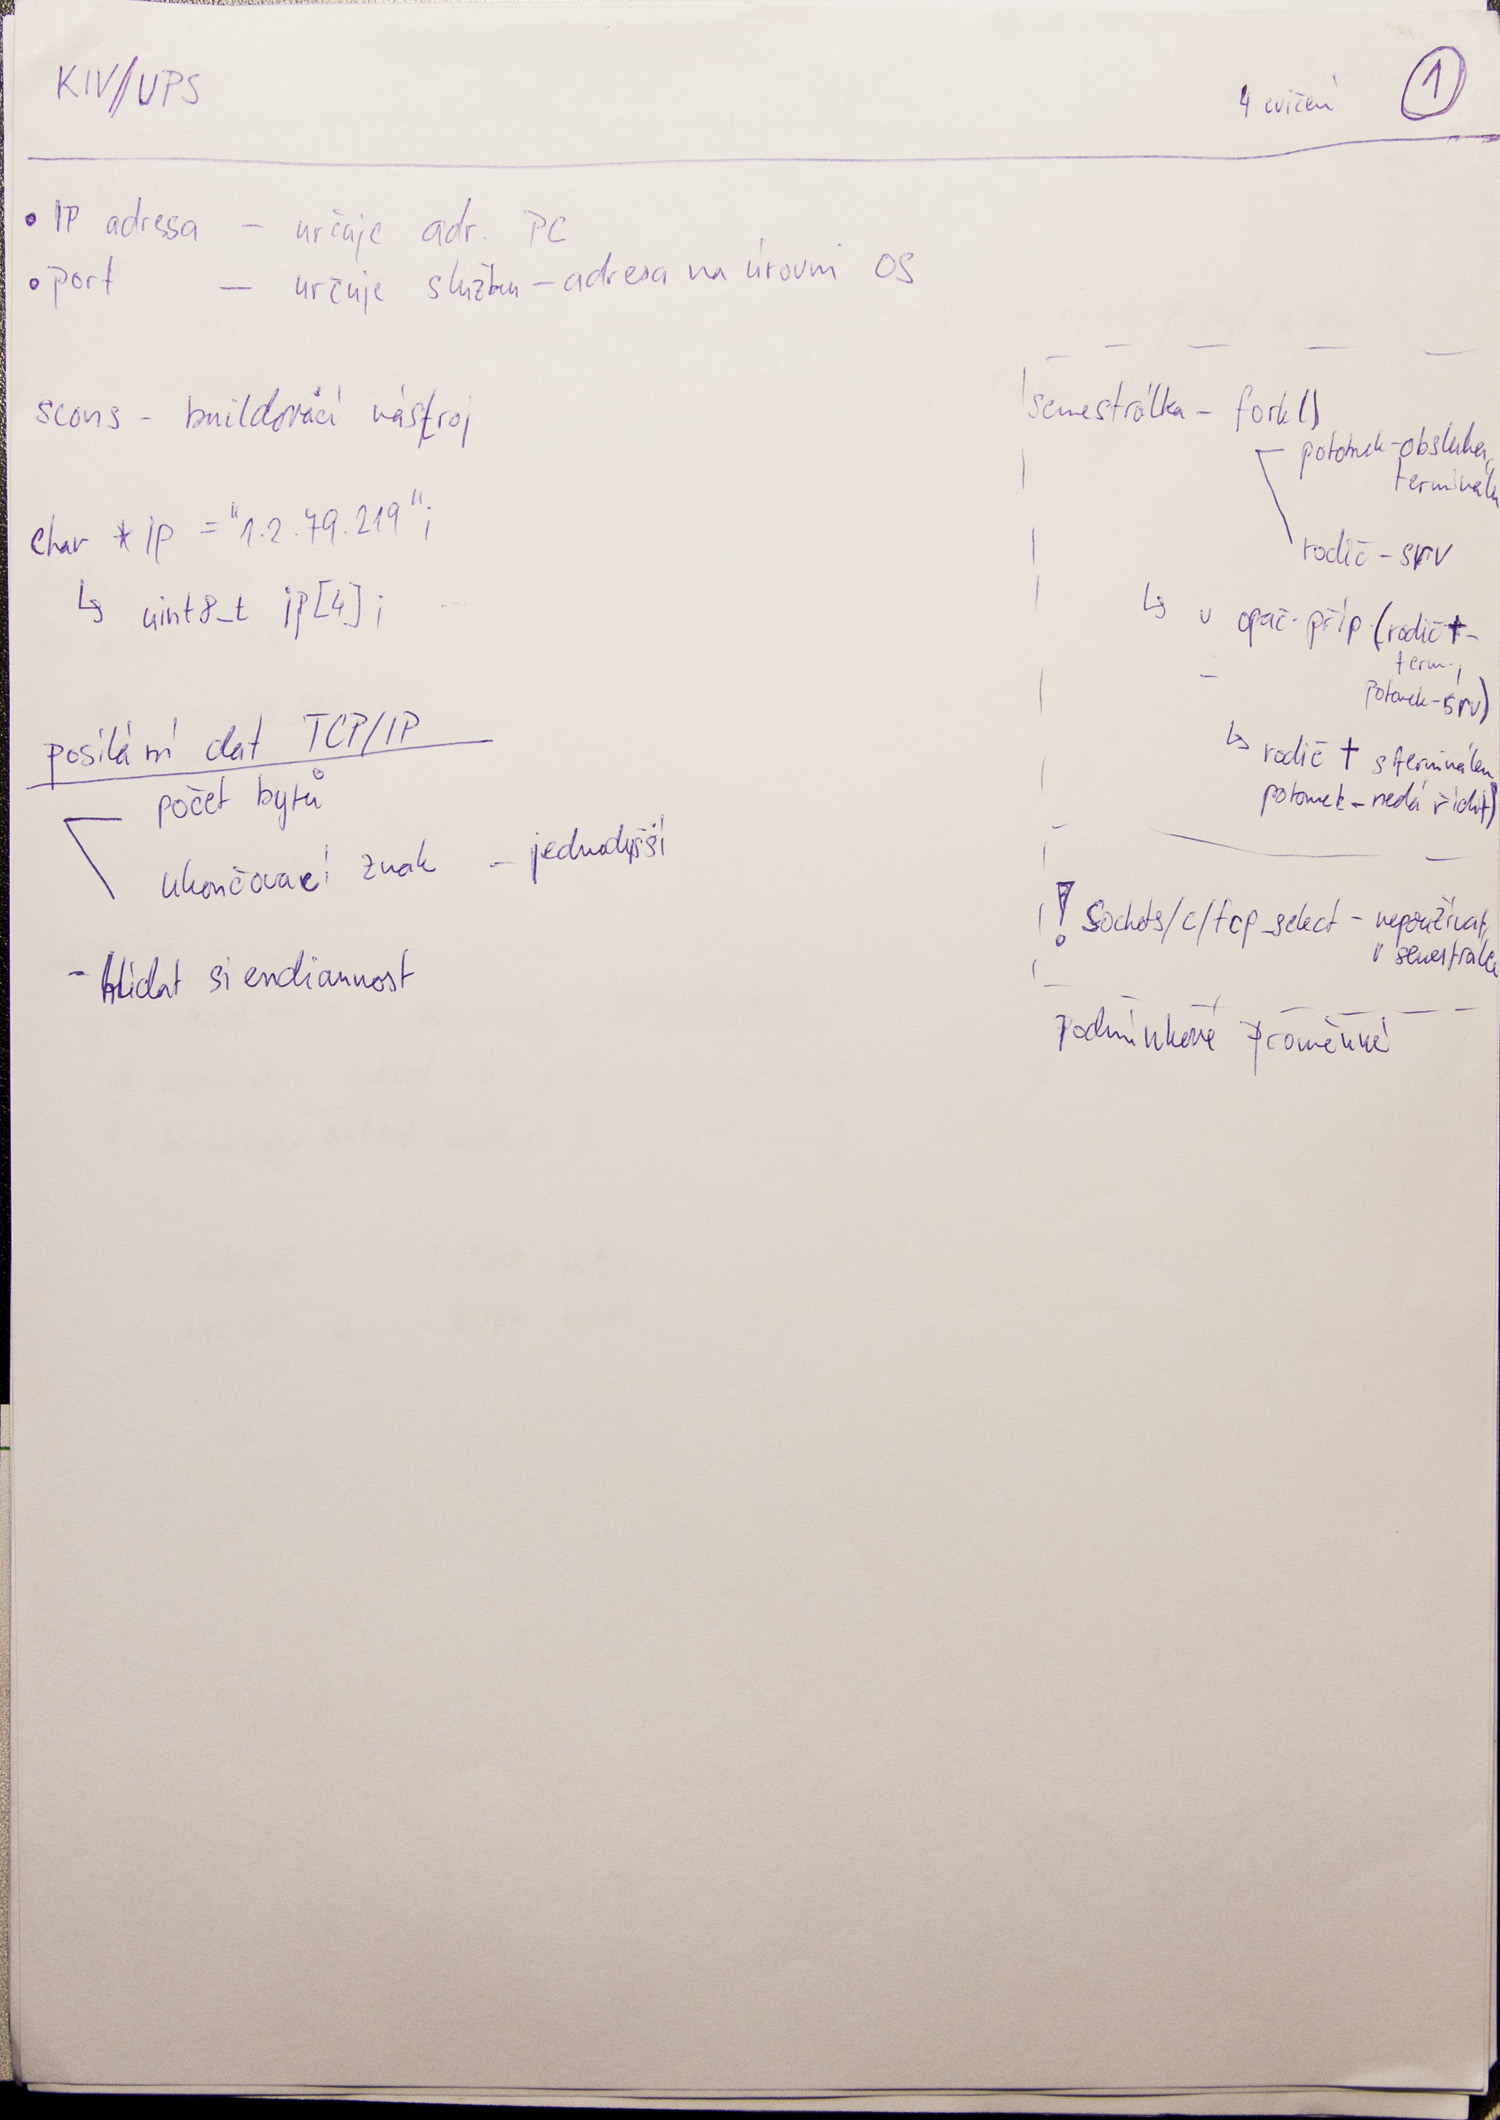 KIV/UPS
4 cvičení
1
• IP adresa – určuje adr. PC
• port – určuje službu – adresa na úrovni OS
scons - buildovací nástroj
char * ip = "1.2.79.219";
↳ uint8_t ip[4];
posílání dat TCP/IP
počet bytů
ukončovací znak – jednodušší
- hlídat si endiannost
semestrálka – fork()
potomek - obsluha
terminálu
rodič – srv
↳ v opač. příp. (rodič -
term.,
potomek - srv)
↳ rodič † s terminálem
potomek – nedá řídit)
! Sockets/c/tcp_select – nepoužívat
v semestrálce
Podmínkové proměnné